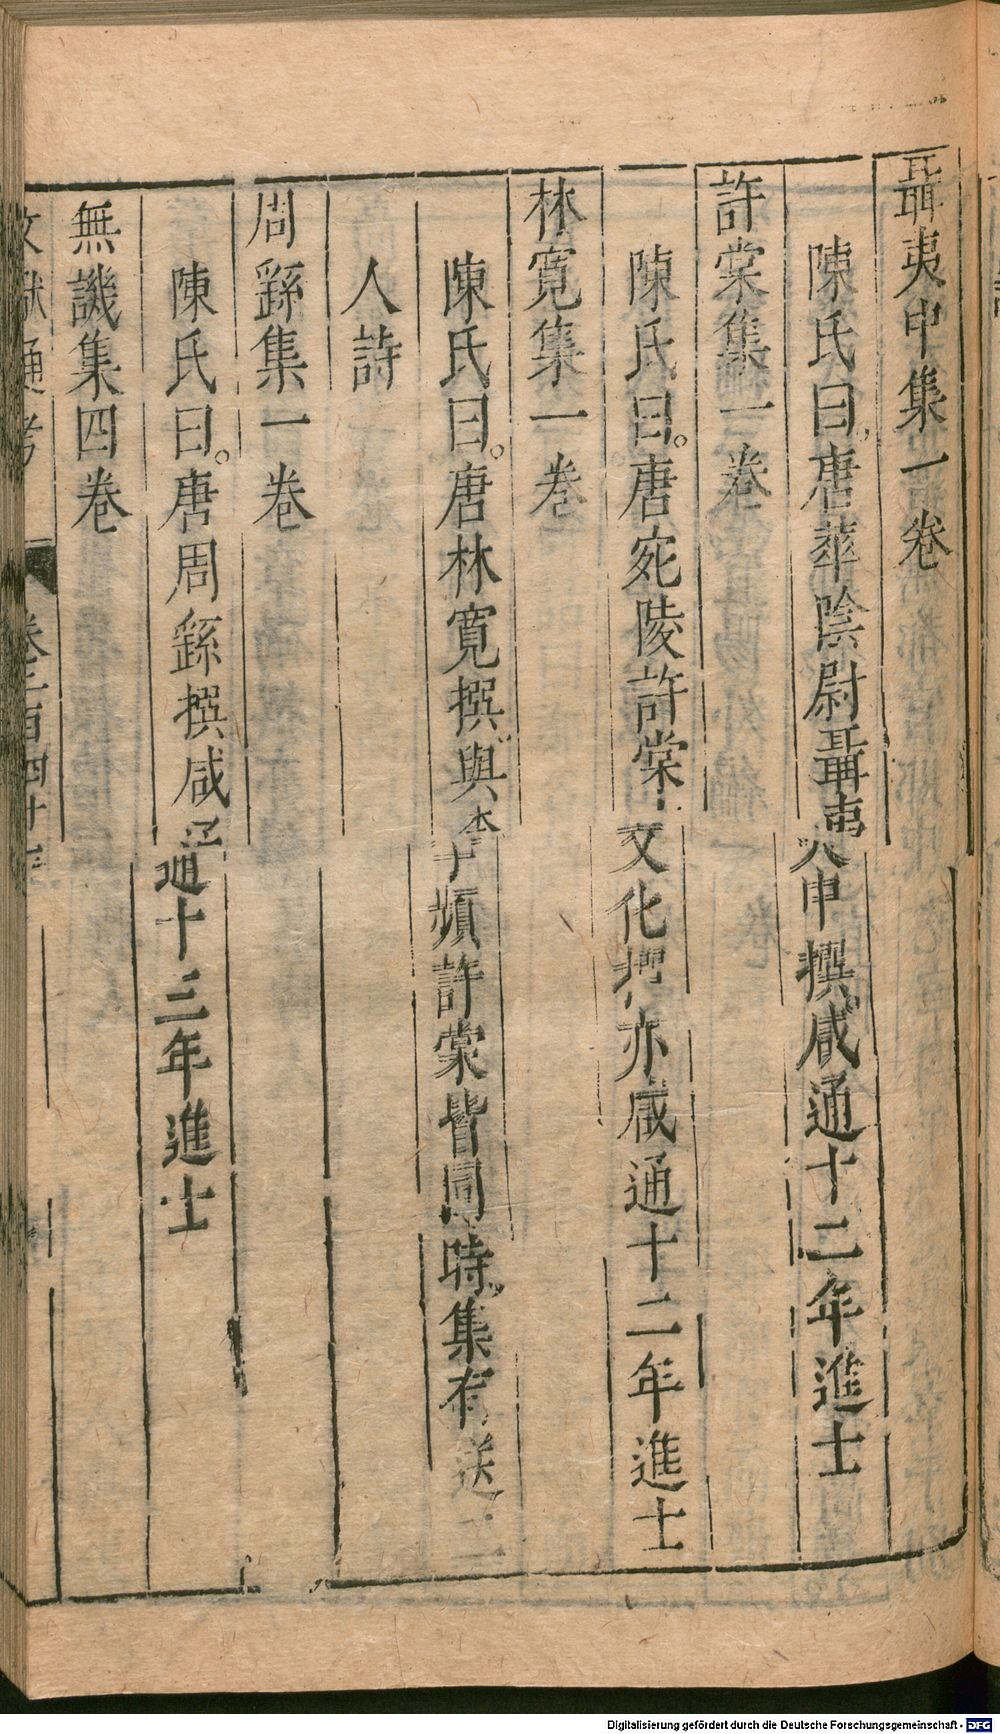 聶夷中集一卷
陳氏曰唐華陰尉聶夷中撰咸通十二年進士
許棠集一卷
陳氏曰唐宛陵許棠文化撰亦咸通十二年進士
林寬集一卷
陳氏曰唐林寬撰與李頻許棠皆同時集有送二
人詩
周繇集一卷
陳氏曰唐周繇撰咸通十三年進士
無譏集四卷
文獻通考 卷二百四十
Digitalisierung gefördert durch die Deutsche Forschungsgemeinschaft - DFG